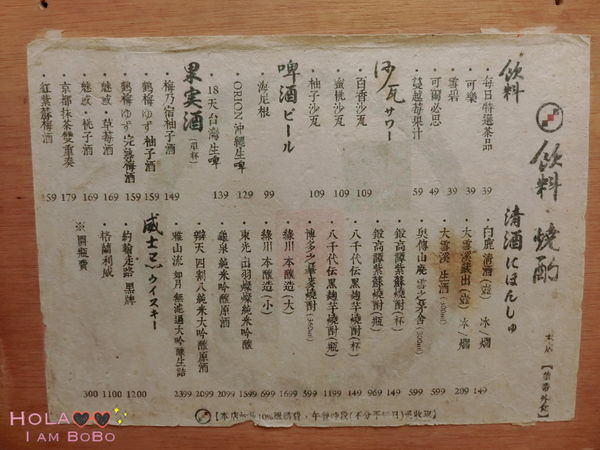 飲料・燒酌
清酒にほんしゅ
本店【禁帶外食】
飲料
・每日特選茶品 39
・可樂 39
・雪碧 39
・可爾必思 49
・蔓越莓果汁 59
沙瓦サワー
・百香沙瓦 109
・蜜桃沙瓦 109
・柚子沙瓦 109
啤酒ビール
・海尼根 99
・ORION 沖繩生啤 129
・18天台灣生啤 139
果実酒(單杯)
・梅乃宿柚子酒 149
・鶴梅ゆず 柚子酒 159
・鶴梅ゆず 完熟梅酒 159
・魅惑・草莓酒 169
・魅惑・桃子酒 169
・京都抹茶雙重奏 179
・紅紫蘇梅酒 159
・白鹿 清酒(壺) 冰/燗 149
・大雪溪藏出(壺) 冰/燗 209
・大雪溪 生酒(300ml) 599
・奧傳山廢 雪之茅舍(300ml) 599
・鍛高譚紫蘇燒酎(杯) 149
・鍛高譚紫蘇燒酎(瓶) 969
・八千代伝黑麹芋燒酎(杯) 149
・八千代伝黑麹芋燒酎(瓶) 1199
・博多之華麥燒酎 599
・綠川 本釀造(大) 1699
・綠川 本釀造(小) 699
・東光 出羽燦燦純米吟釀 1599
・龜泉 純米吟釀原酒 2099
・辯天 四割八純米大吟釀原酒 2099
・雅山流 如月 無濾過大吟釀生詰 2399
威士忌ウイスキー
・約翰走路 黑牌 1200
・格蘭利威 1100
※開瓶費 300
HOLA
I AM BOBO